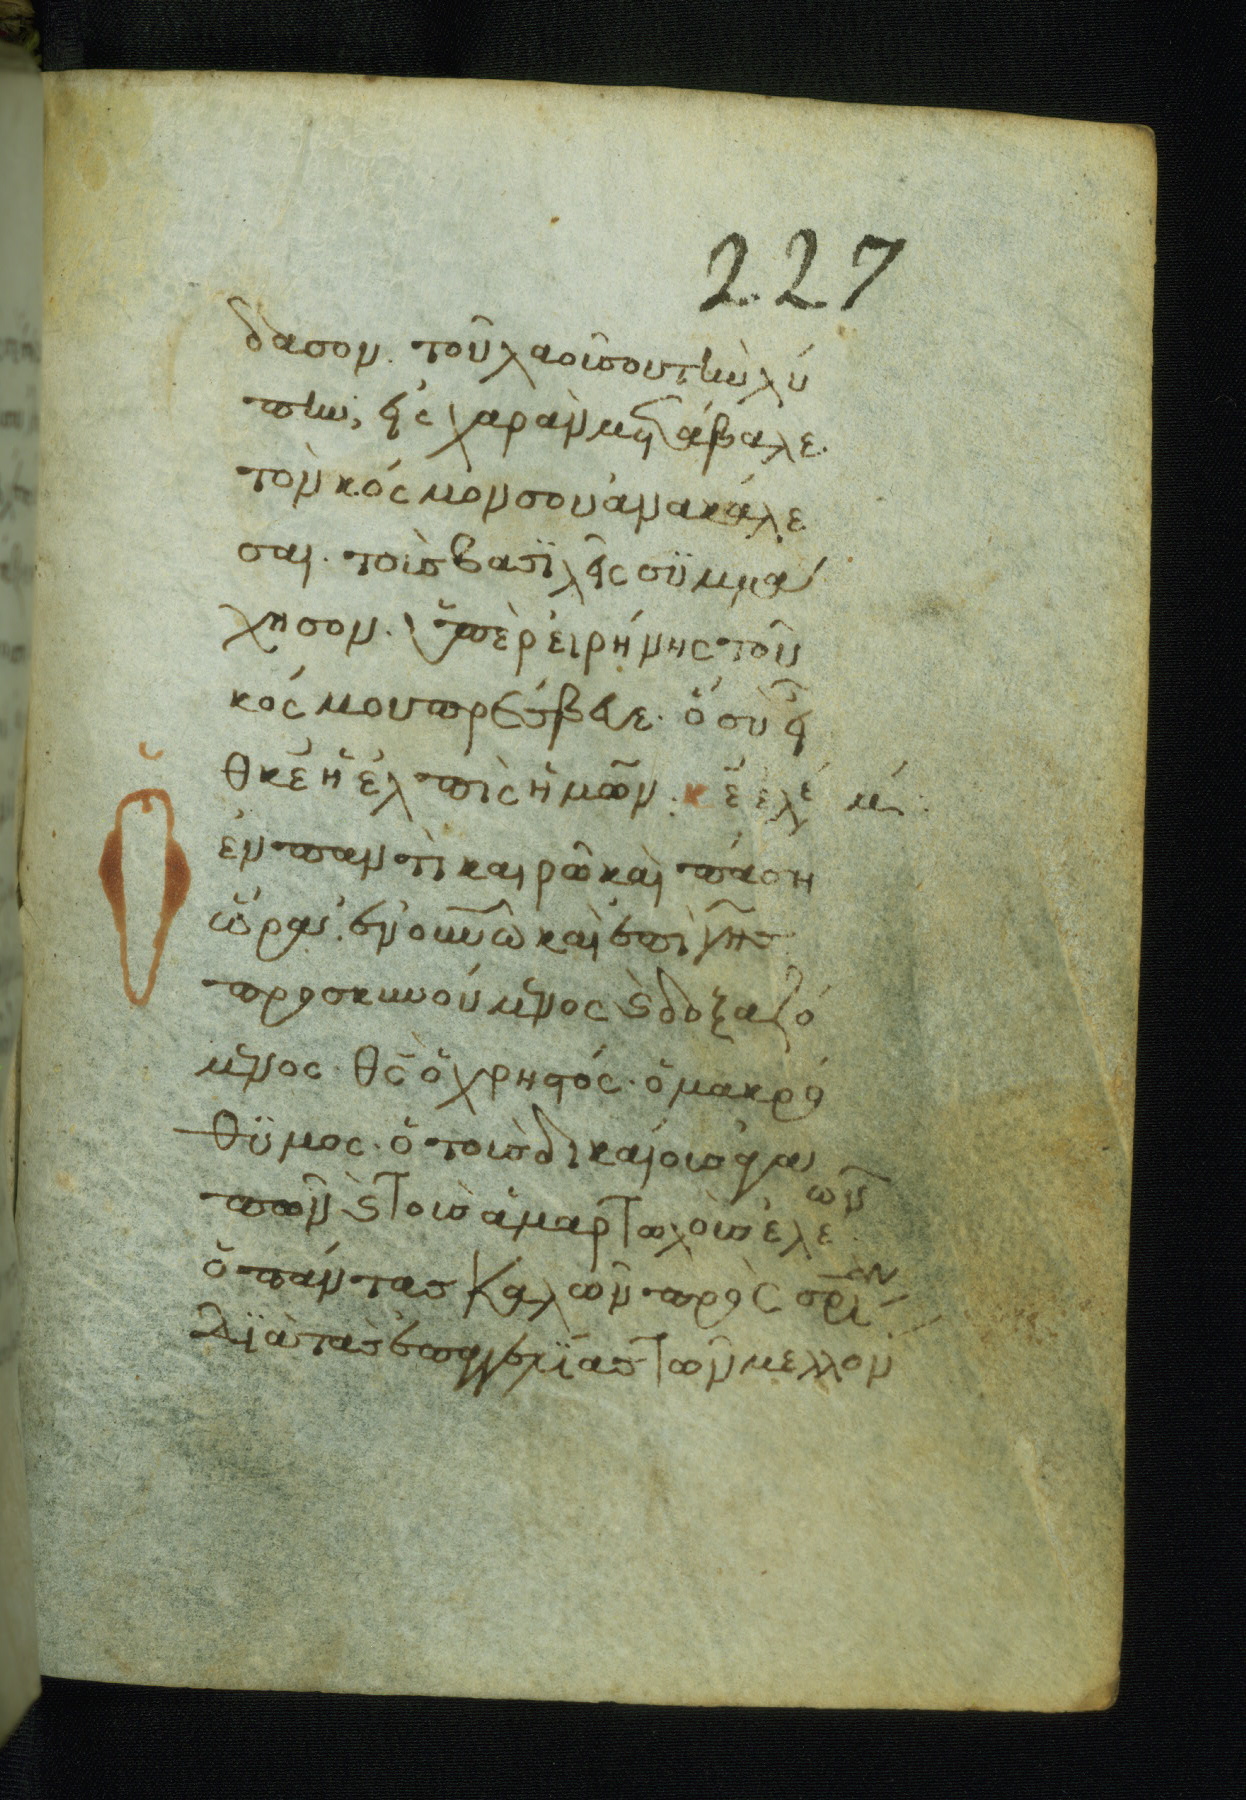 227
δασον. τοῦ λαοῦ σου τὴν λύ
πην, εἰς χαρὰν μετάβαλε.
τὸν κόσμον σου ἀνακάλε
σαι. τοῖς βασϊλεῖς σϋμμα
χησον. ὑπὲρ εἰρήνης τοῦ
κόσμου πρέσβευε. ὅ συ εἶ
θκε ἡ ἐλπὶς ἡμῶν. κε ἐλέ
ἐν παντὶ καιρῶ καὶ πάση
ὥρα. ἐν οὐνω καὶ ἐπὶ γῆς
προσκυνούμενος ϗ δοξαζό
μενος. θς ὁ χρηστός. ὁ μακρό
θϋμος. ὁ τοὺς δικαίους ἀγα
πῶν ϗ τοὺς ἁμαρτωλοὺς ἐλεῶν
ὁ πάντας καλῶν πρὸς σρίαν
διὰ τῆς ἐπαγγελΐας τῶν μελλον